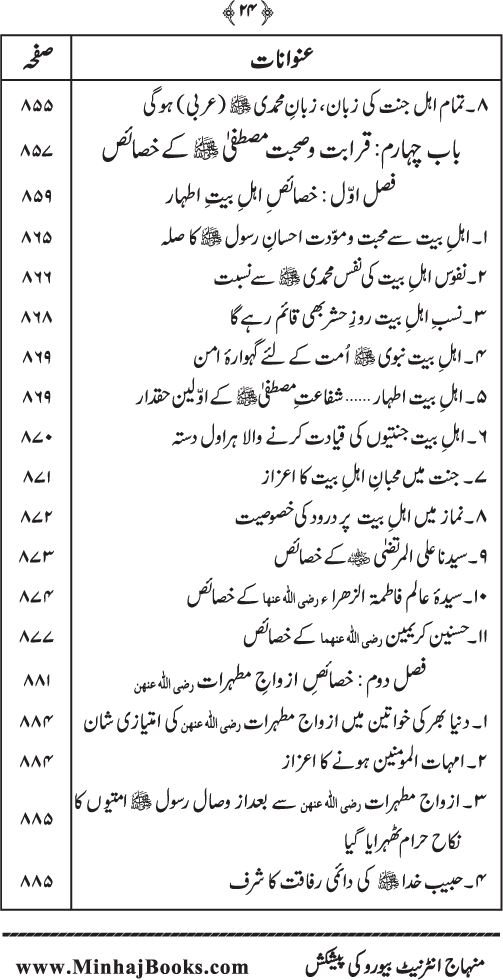 ﴿ ۲۴ ﴾
عنوانات صفحہ
۸۔ تمام اھل جنت کی زبان، زبانِ محمدی ﷺ (عربی) ہوگی ۸۵۵
باب چہارم: قرابت و صحبتِ مصطفیٰ ﷺ کے خصائص ۸۵۷
فصل اوّل : خصائصِ اہلِ بیتِ اطہار ۸۵۹
۱۔ اہلِ بیت سے محبت و مؤدت احسانِ رسول ﷺ کا صلہ ۸۶۵
۲۔ نفوسِ اہلِ بیت کی نفسِ محمدی ﷺ سے نسبت ۸۶۶
۳۔ نسبِ اہلِ بیت روزِ حشر بھی قائم رہے گا ۸۶۸
۴۔ اہلِ بیت نبوی ﷺ اُمت کے لئے گہوارۂ امن ۸۶۹
۵۔ اہلِ بیت اطہار ...... شفاعتِ مصطفیٰ ﷺ کے اوّلین حقدار ۸۶۹
۶۔ اہلِ بیت جنتیوں کی قیادت کرنے والا ہراول دستہ ۸۷۰
۷۔ جنت میں محبانِ اہلِ بیت کا اعزاز ۸۷۱
۸۔ نماز میں اہلِ بیت پر درود کی خصوصیت ۸۷۲
۹۔ سیدنا علی المرتضیٰ رضی اللہ عنہ کے خصائص ۸۷۳
۱۰۔ سیدۂ عالم فاطمۃ الزھراء رضی اللہ عنھا کے خصائص ۸۷۴
۱۱۔ حسنین کریمین رضی اللہ عنھما کے خصائص ۸۷۷
فصل دوم : خصائصِ ازواجِ مطہرات رضی اللہ عنھن ۸۸۱
۱۔ دنیا بھر کی خواتین میں ازواجِ مطہرات رضی اللہ عنھن کی امتیازی شان ۸۸۴
۲۔ امہات المومنین ہونے کا اعزاز ۸۸۴
۳۔ ازواجِ مطہرات رضی اللہ عنھن سے بعد از وصال رسول ﷺ امتیوں کا
نکاح حرام ٹھہرایا گیا ۸۸۵
۴۔ حبیبِ خدا ﷺ کی دائمی رفاقت کا شرف ۸۸۵
منہاج انٹرنیٹ بیورو کی پیشکش www.MinhajBooks.com